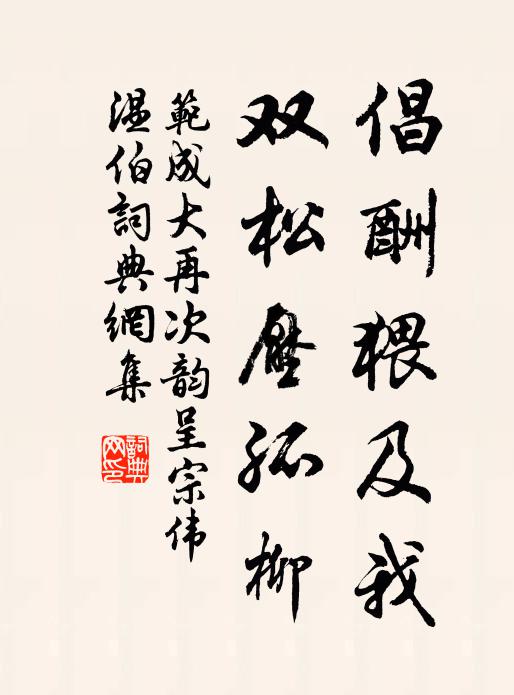 倡酬猥及我
双松压孤柳
範成大再次韵呈宗伟
温伯詞典網集
詞典网印